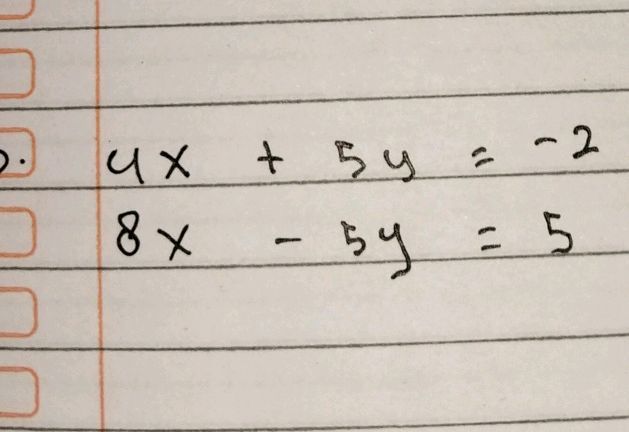 4x + 5y = -2
8x - 5y = 5